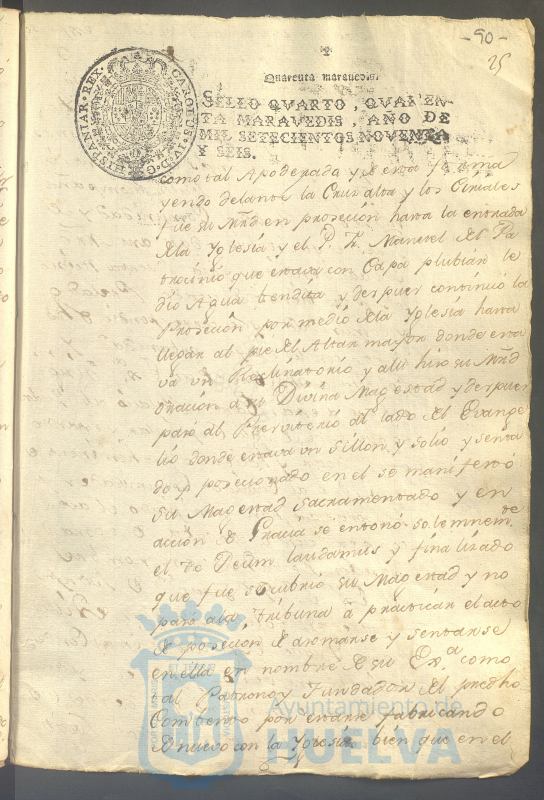 - 90 -
25
Quarenta maravedis.
SELLO QVARTO, QVAREN-
TA MARAVEDIS, AÑO DE
MIL SETECIENTOS NOVENTA
Y SEIS.
CAROLUS IV D G HISPANIAR REX
como tal Apoderada y
yendo delante la Cruz alta y los Ciriales
fue su Mrd en prosecion hasta la entrada
xla Yglesia y el P. Fr. Manuel xl Pa
trocinio que estava con Capa plubial le
dio Agua bendita y despues continuó la
Prosecion por medio xla Yglesia hasta
llegar al pie xl Altar mayor donde esta
va un Reclinatorio y alli hizo su Mrd
oración a su Divina Magestad y despues
paso al Presviterio al lado xl Evange
lio donde estava un Sillon y Solio y senta
do y posecionado en el se manifestó
su Magestad Sacramentado y en
acción de Gracia se entonó solemnemte
el te Deum laudamus y finalizado
que fue se cubrio su Magestad y no
paso a la tribuna á practicar el acto
de posecion de asomarse y sentarse
en ella en nombre de su Exa como
tal Patrono y Fundador xl predho
Combento por estarse fabricando
de nuevo con la Yglesia bien que en el
Ayuntamiento de
HUELVA